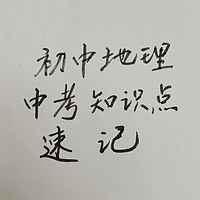 初中地理
中考知识点
速记